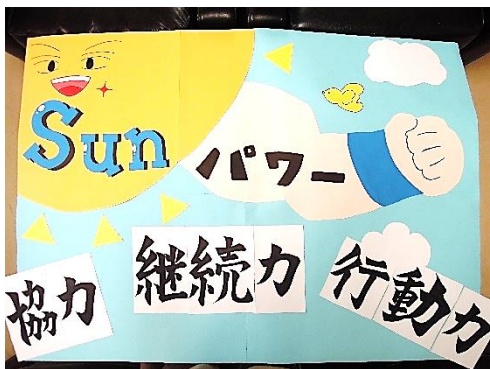 Sun
パワー
協力
継続力
行動力